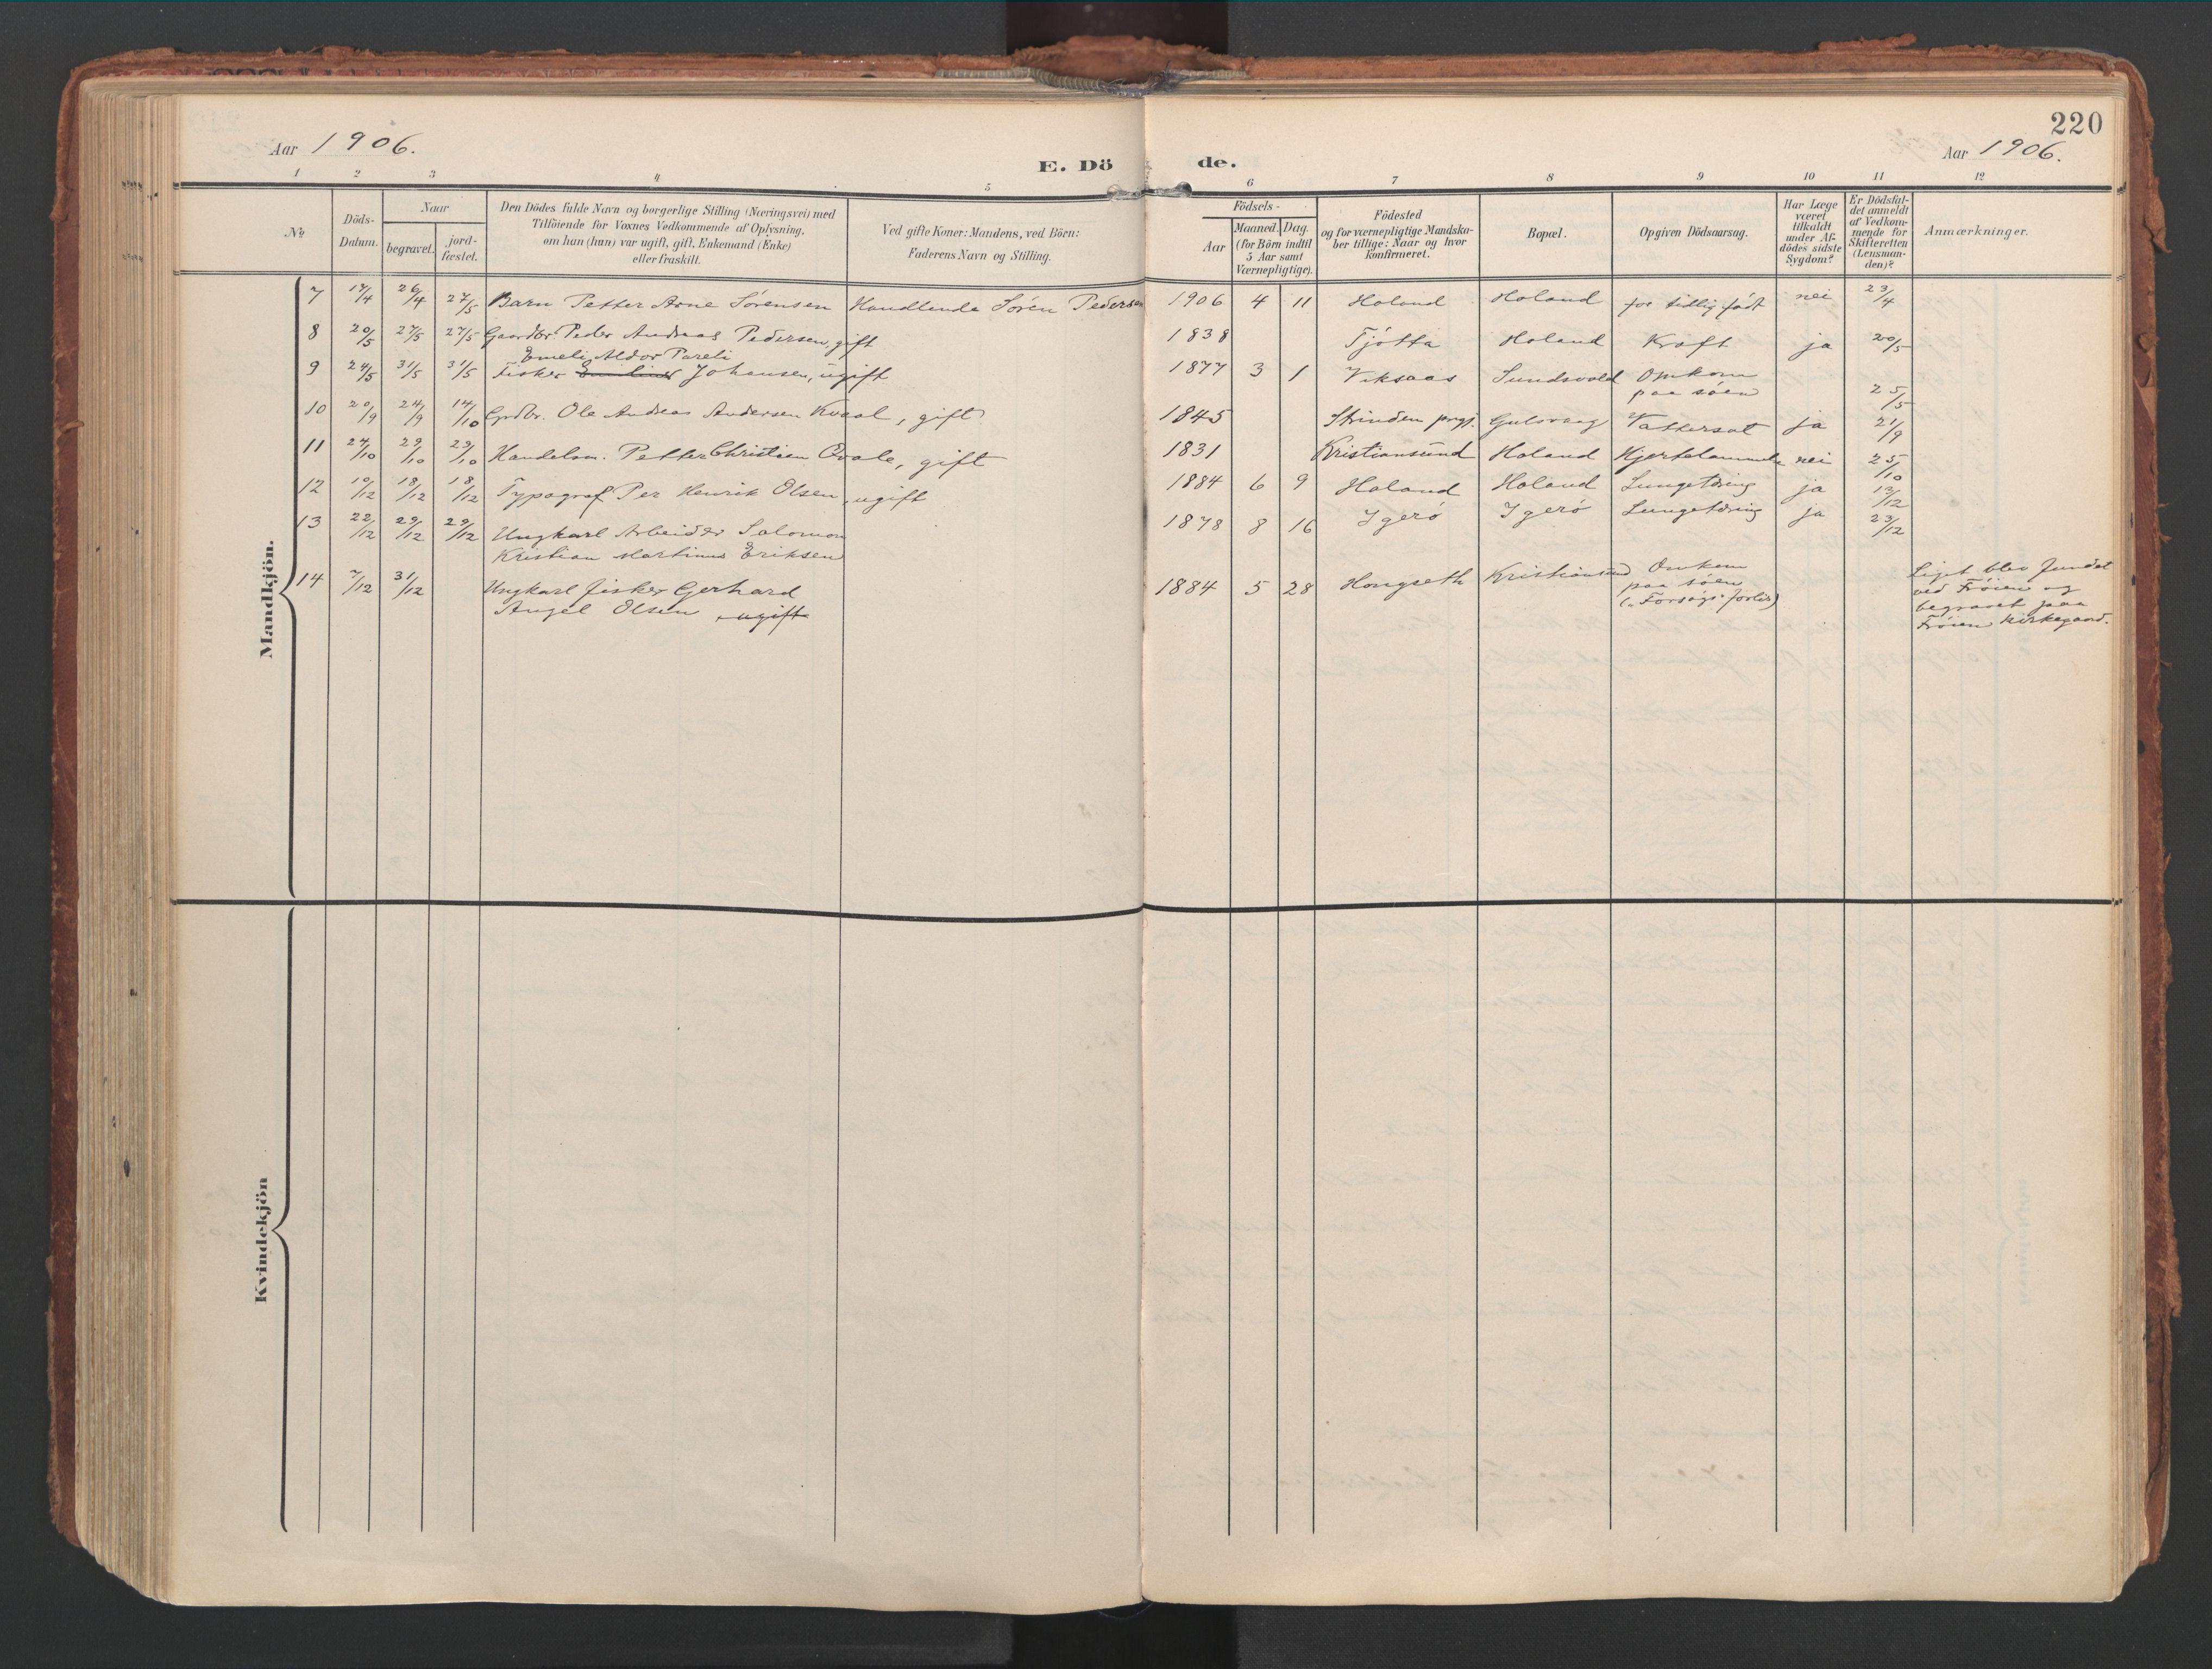 220
Aar 1906.
E. Dö de.
Aar 1906.
1 2 3 4 5 6 7 8 9 10 11 12
No
Döds-Datum.
Naar
begravet.
jord-fæstet.
Den Dödes fulde Navn og borgerlige Stilling (Næringsvei) med
Tilföiende for Voxnes Vedkommende af Oplysning,
om han (hun) var ugift, gift, Enkemand (Enke)
eller fraskilt.
Ved gifte Koner: Mandens, ved Börn:
Faderens Navn og Stilling.
Födsels-
Aar
Maaned. Dag.
(for Börn indtil
5 Aar samt
Værnepligtige).
Födested
og for værnepligtige Mandska-
ber tillige: Naar og hvor
konfirmeret.
Bopæl.
Opgiven Dödsaarsag.
Har Læge
været
tilkaldt
under Af-
dödes sidste
Sygdom?
Er Dödsfal-
det anmeldt
af Vedkom-
mende for
Skifteretten
(Lensman-
den)?
Anmærkninger.
Mandkjön.
7 17/4 26/4 27/5 Barn Petter Arne Sørensen Handlende Søren Pedersen 1906 4 11 Holand Holand for tidlig født nei 23/4
8 20/5 27/5 27/5 Gaardbr. Peder Andreas Pedersen, gift 1838 Tjøtta Holand Kræft ja 20/5
Emeli Aldor Pareli
9 24/5 31/5 31/5 Fisker Johansen, ugift 1877 3 1 Viksaas Sundsvold Omkom
paa søen 25/5
10 20/9 24/9 14/10 Grdbr. Ole Andreas Andersen Kvaal, gift 1845 Strinden prgj. Gulsvaag Vattersot ja 21/9
11 24/10 29/10 29/10 Handelsm. Petter Christian Qvale, gift 1831 Kristiansund Holand Hjertelammelse nei 25/10
12 10/12 18/12 18/12 Typograf Per Henrik Olsen, ugift 1884 6 9 Holand Holand Lungetæring ja 12/12
13 22/12 29/12 29/12 Ungkarl Arbeider Salomon
Kristian Martinus Eriksen 1878 8 16 Igerø Igerø Lungetæring ja 23/12
14 7/12 31/12 Ungkarl fisker Gerhard
Angel Olsen, ugift 1884 5 28 Hongseth Kristiansund Omkom
paa søen
("Forsøgs" forlis)
Liget blev fundet
ved Frøien og
begravet paa
Frøien Kirkegaard.
Kvindekjön